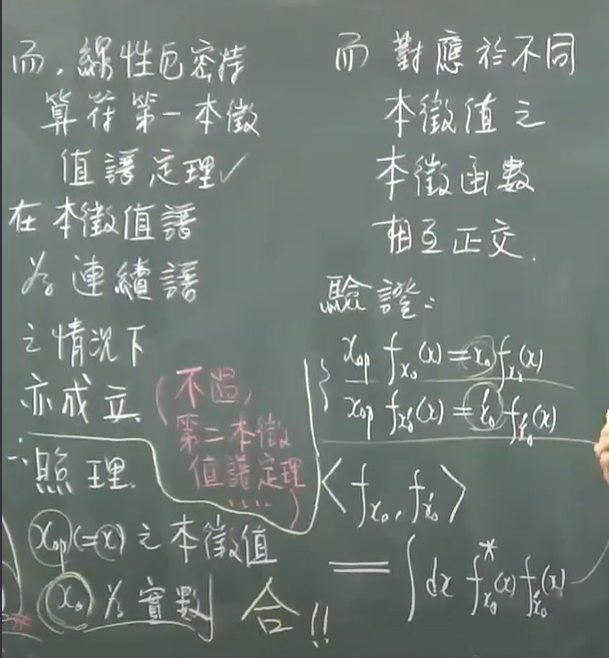 而,線性厄密符
算符第一本徵
值譜定理✓
在本徵值譜
為連續譜
之情況下
亦成立
(不過,
第二本徵
值譜定理
....)
∴照理
x_op(=x)之本徵值
x₀為實數
合!!
而對應於不同
本徵值之
本徵函數
相互正交.
驗證:
x_op f_{x₀}(x)=x₀f_{x₀}(x)
x_op f_{x₀'}(x)=x₀'f_{x₀'}(x)
⟨f_{x₀},f_{x₀'}⟩
=∫dx f*_{x₀}(x)f_{x₀'}(x)